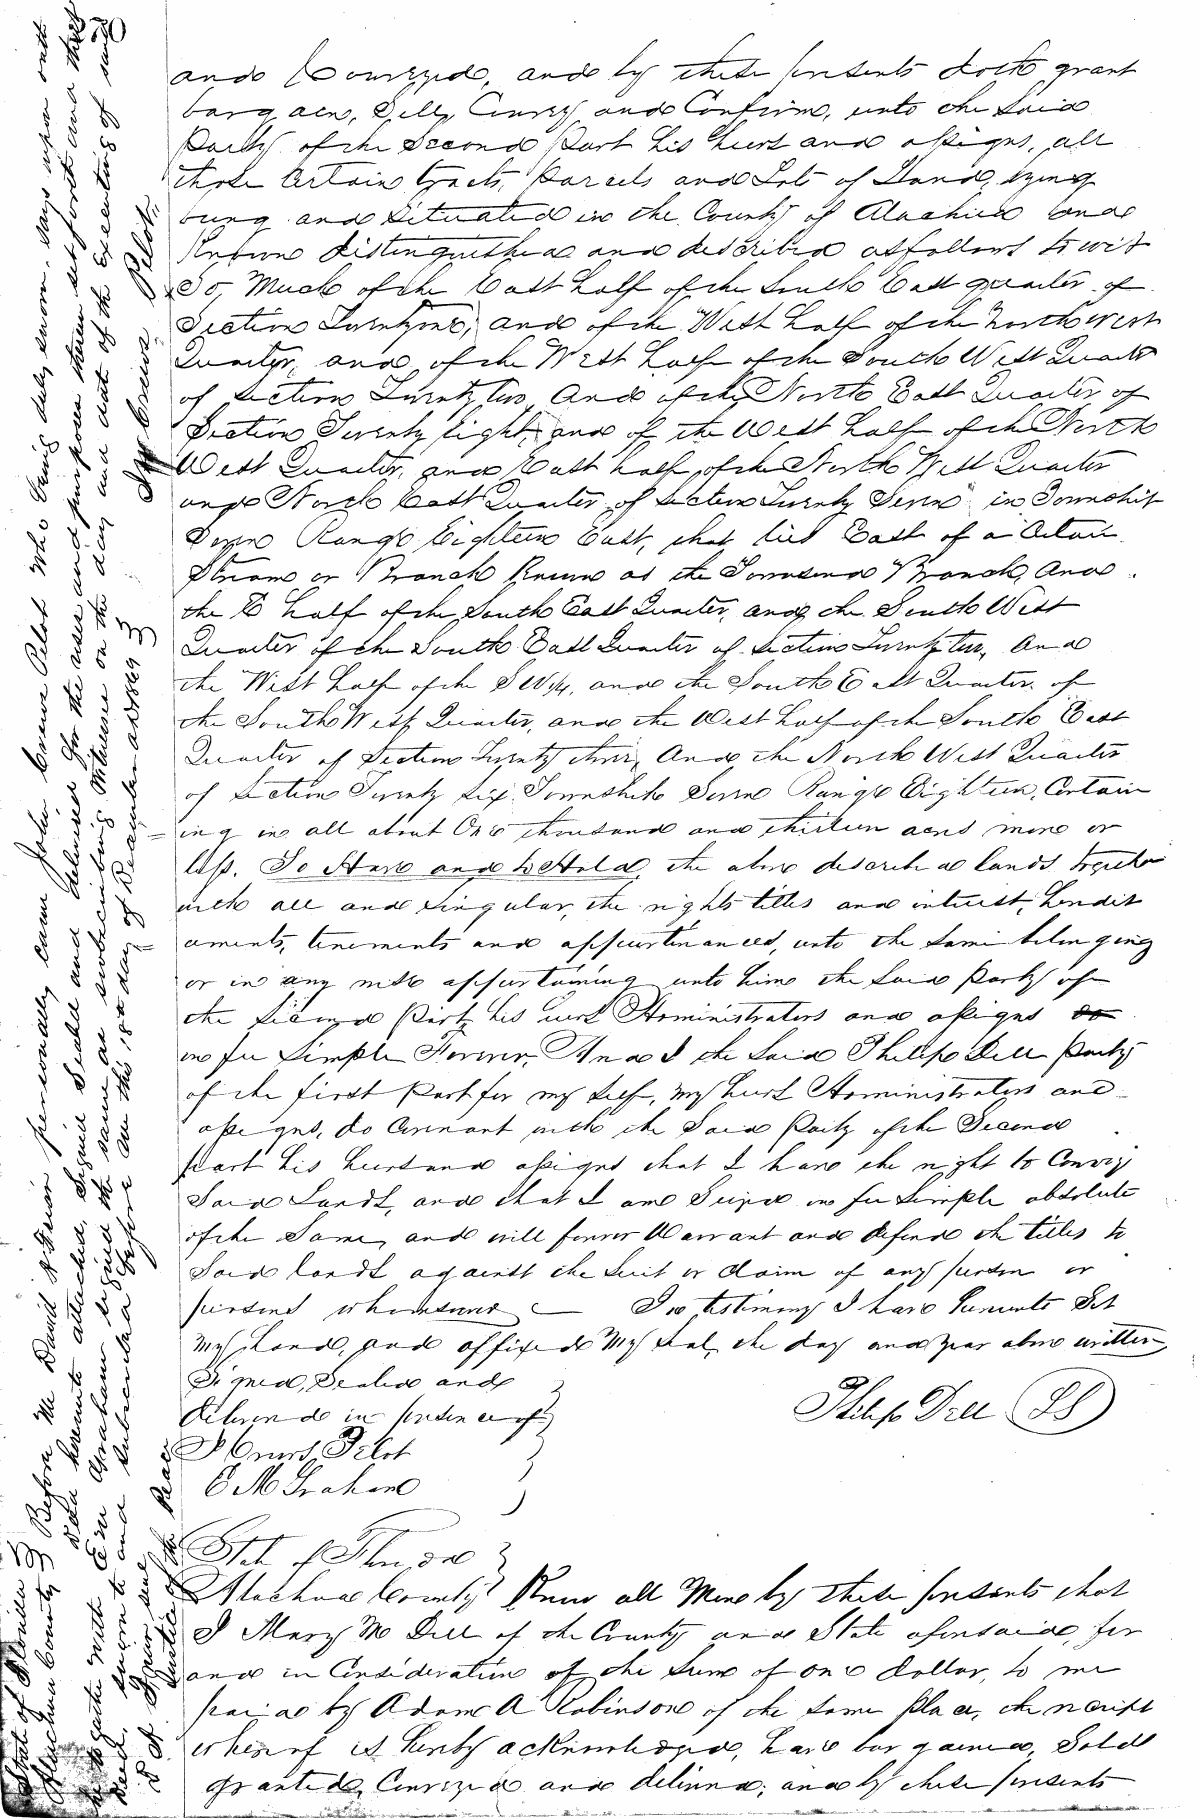 370
and Conveyed, and by these presents doth grant
bargain, Sell, Convey and Confirm, unto the Said
Party of the Second Part his heirs and assigns, all
those Certain tracts, Parcels and Lots of Land, lying
being and Situated in the County of Alachua and
Known distinguished and described as follows to wit
So Much of the East half of the South East quarter of
Section Twenty one, and of the West half of the North West
Quarter, and of the West half of the South West Quarter
of Section Twenty two, And of the North East Quarter of
Section Twenty Eight, and of the West half of the North
West Quarter, and East half of the North West Quarter
and North East Quarter of Section Twenty Seven in Township
Seven Range Eighteen East, that lies East of a Certain
Stream or Branch Known as the Townsend Branch, And
the E half of the South East Quarter, and the South West
Quarter of the South East Quarter of Section Twenty two, And
the West half of the S W 1/4, and the South East Quarter of
the South West Quarter, and the West half of the South East
Quarter of Section Twenty three, And the North West Quarter
of Section Twenty Six Township Seven Range Eighteen, Contain
ing in all about One thousand and thirteen acres more or
less. To Have and to Hold, the above described lands together
with all and singular, the rights titles and interest, heredit
aments, tenements and appurtenances, unto the same belonging
or in any wise appertaining unto him the Said Party of
the Second Part, his heirs Administrators and assigns
in fee Simple Forever, And I the Said Philip Dell Party
of the first Part for my self, my heirs Administrators and
assigns, do Covenant with the Said Party of the Second
part his heirs and assigns that I have the right to Convey
Said Lands, and that I am Seized in fee Simple absolute
of the Same, and will forever Warrant and defend the titles to
Said lands against the Suit or Claim of any person or
persons whomsoever — In testimony I have hereunto Set
My hand, and affixed My Seal, the day and year above written
Signed, Sealed and
delivered in presence of
J Crews Pilot
E M Graham
Philip Dell (LS)
State of Florida
Alachua County Know all Men by these presents that
I Mary M Dell of the County and State aforesaid, for
and in Consideration of the Sum of one dollar, to me
paid by Adam A Robinson of the same place, the receipt
whereof is hereby acknowledged, have bargained, Sold
granted, Conveyed and delivered, and by these presents
State of Florida
Alachua County Before Me David A Prior personally came John Crews Pilot who being duly sworn, says upon oath
deed hereunto attached, Signed Sealed and delivered for the uses and purposes therein set forth and that
he together with E M Graham signed the same as subscribing Witnesses on the day and date of the Executing of said
deed, sworn to and subscribed before me this 18th day of December AD 1849
J Crews Pilot
D A Prior seal
Justice of the Peace